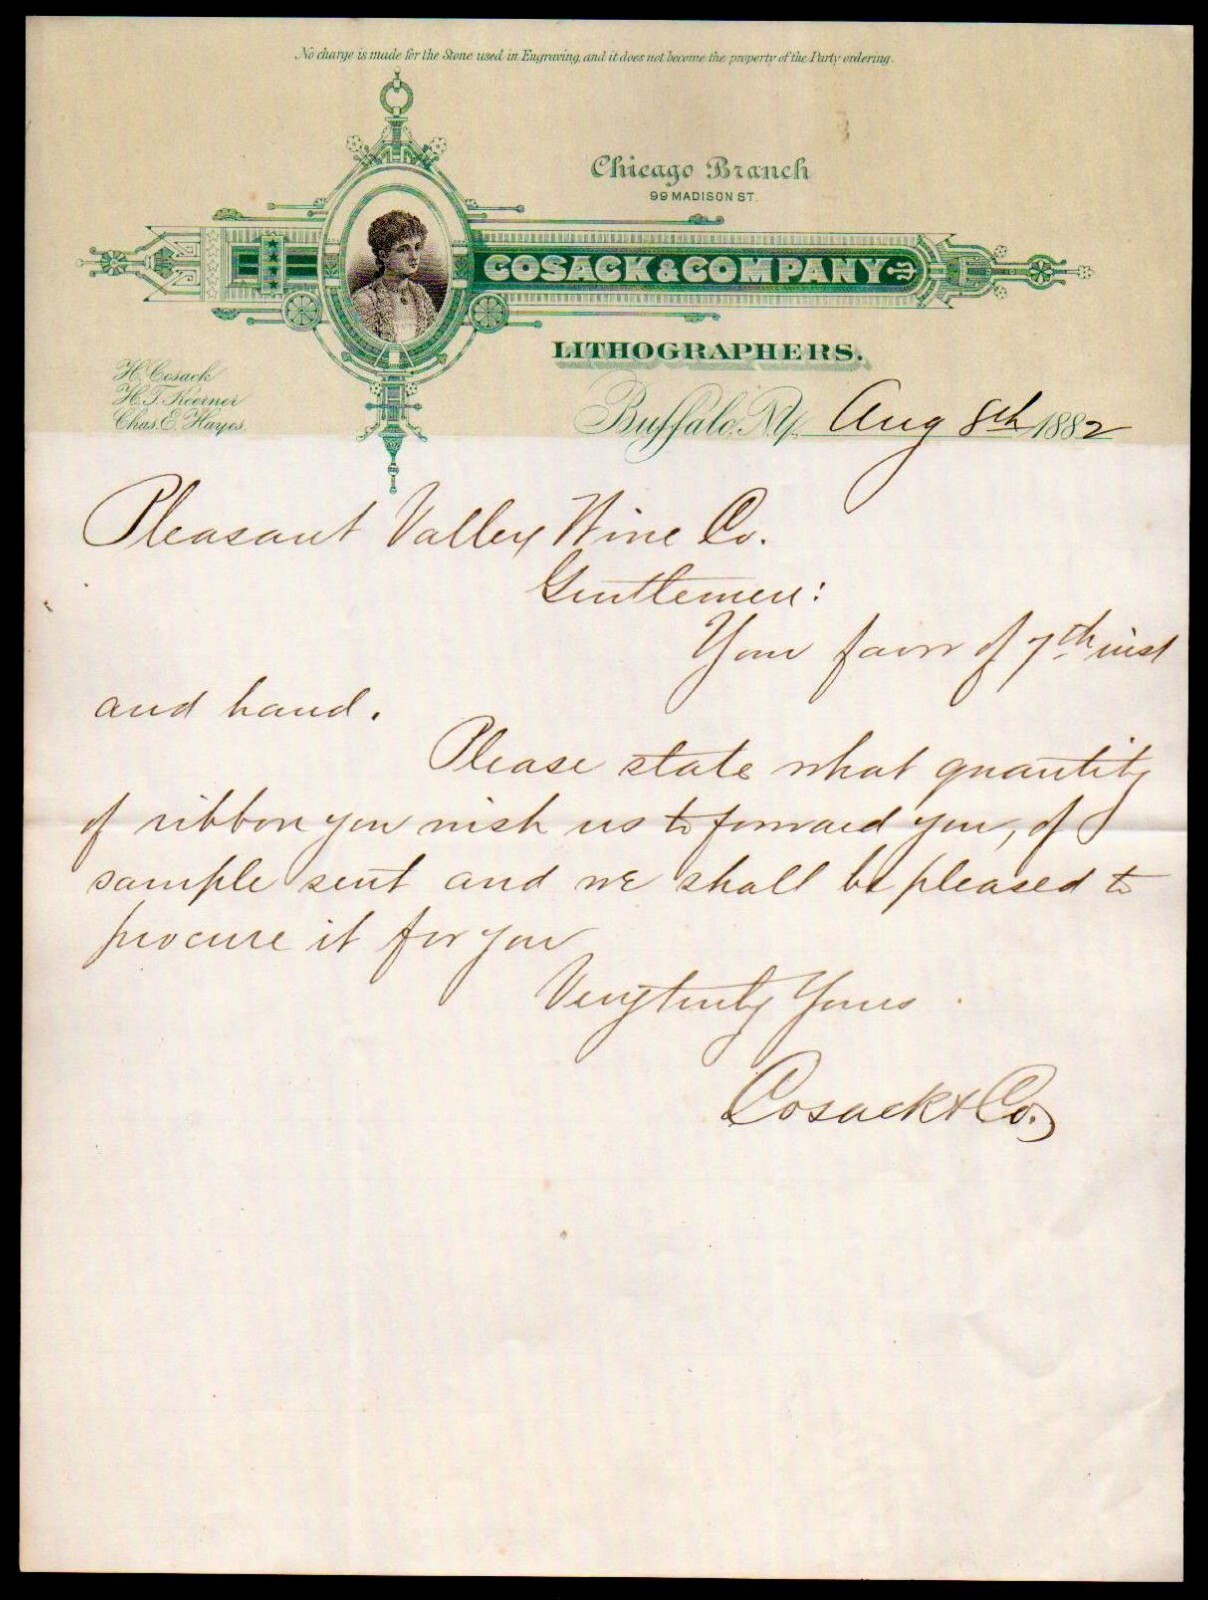 No charge is made for the Stone used in Engraving, and it does not become the property of the Party ordering.
Chicago Branch
99 MADISON ST.
COSACK & COMPANY
LITHOGRAPHERS.
H. Cosack
H. T. Koerner
Chas. E. Hayes.
Buffalo, N.Y. Aug 8th 1882
Pleasant Valley Wine Co.
Gentlemen:
Your favor of 7th inst
and hand.
Please state what quantity
of ribbon you wish us to forward you, of
sample sent and we shall be pleased to
procure it for you
Very truly Yours
Cosack & Co.